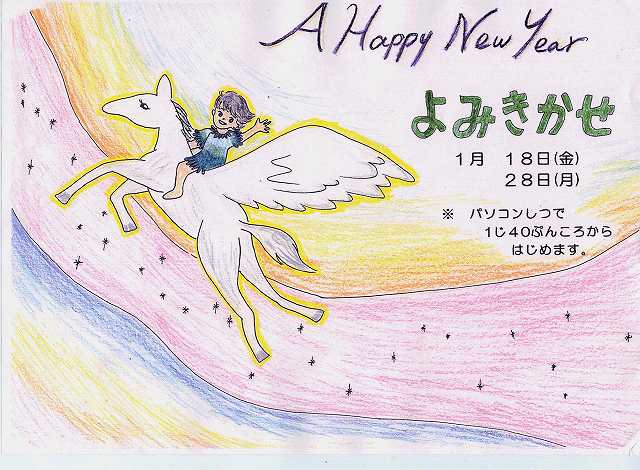 A Happy New Year
よみきかせ
1月 18日(金)
28日(月)
※ パソコンしつで
1じ40ぷんころから
はじめます。